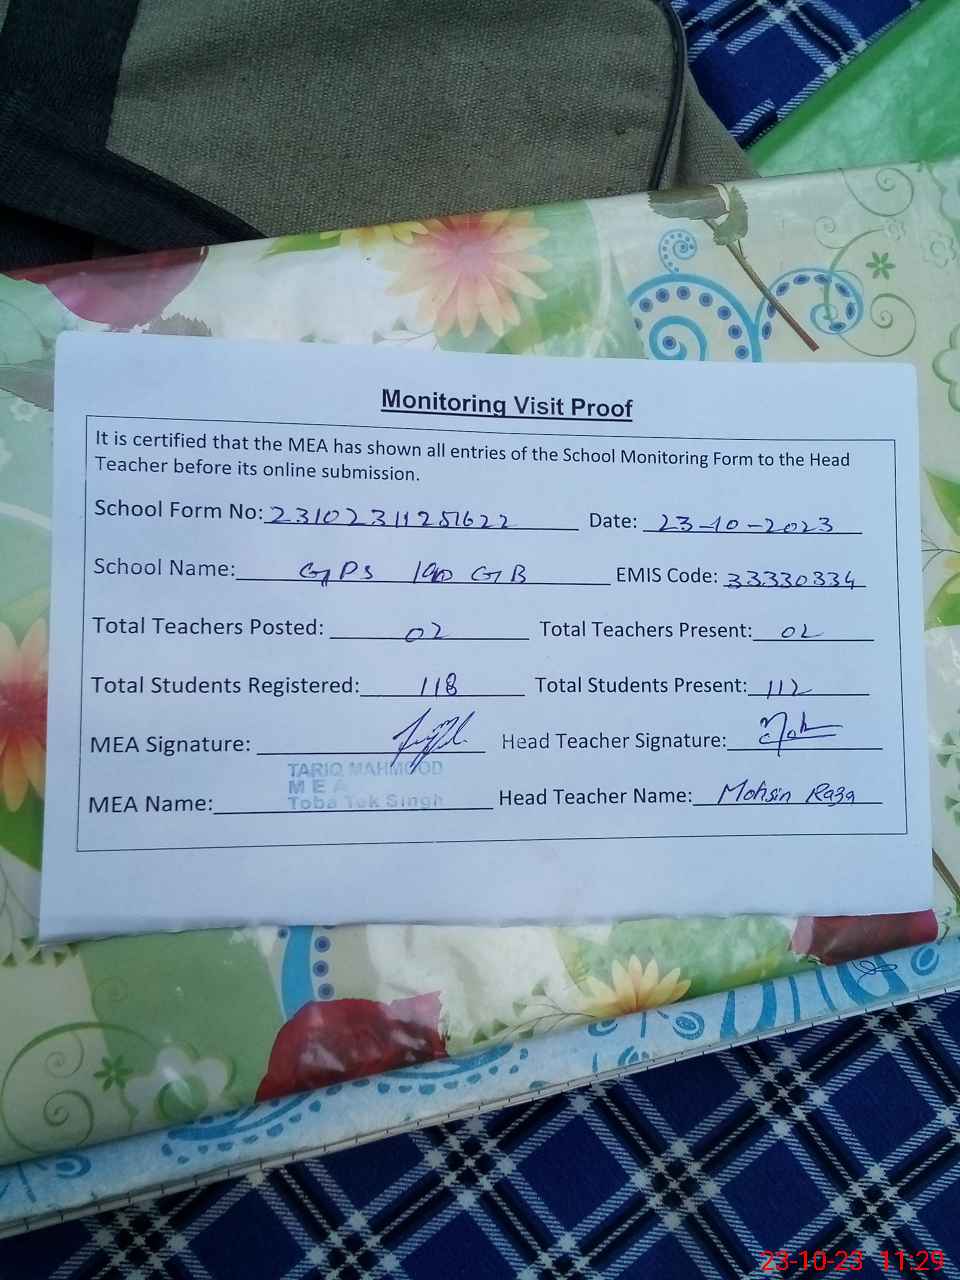 Monitoring Visit Proof
It is certified that the MEA has shown all entries of the School Monitoring Form to the Head
Teacher before its online submission.
School Form No: 23102311251622 Date: 23-10-2023
School Name: GPS 190 GB EMIS Code: 33330334
Total Teachers Posted: 02 Total Teachers Present: 02
Total Students Registered: 118 Total Students Present: 112
MEA Signature: Head Teacher Signature:
TARIQ MAHMOOD
MEA
Toba Tek Singh
MEA Name: Head Teacher Name: Mohsin Raza
23-10-23 11:29